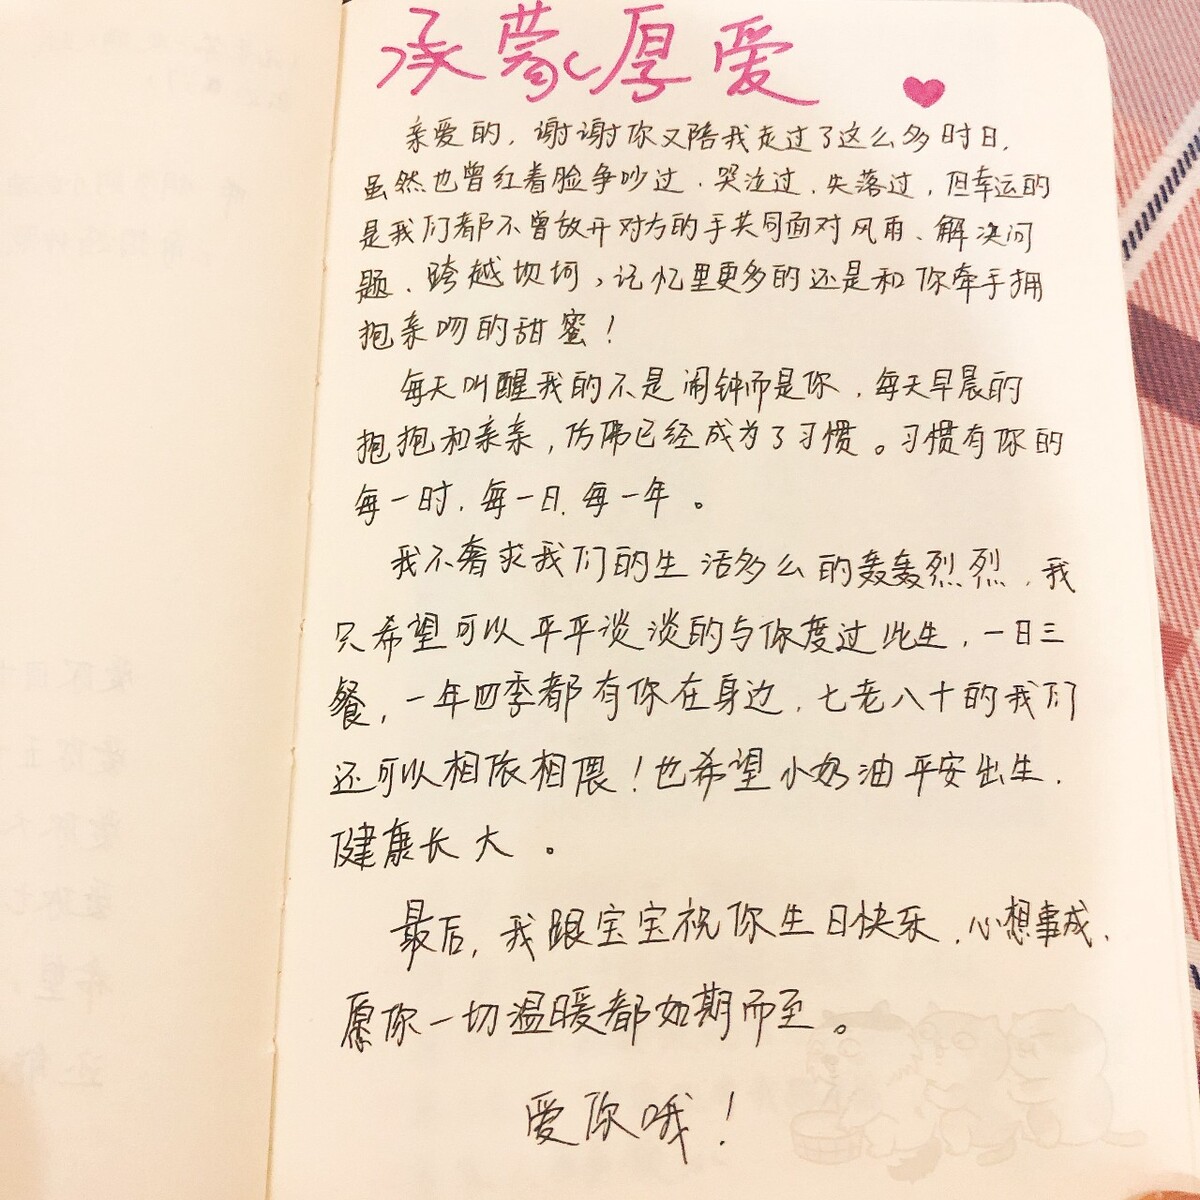 承蒙厚爱
亲爱的，谢谢你又陪我走过了这么多时日，
虽然也曾红着脸争吵过、哭泣过、失落过，但幸运的
是我们都不曾放开对方的手共同面对风雨、解决问
题、跨越坝坷，记忆里更多的还是和你牵手拥
抱亲吻的甜蜜！
每天叫醒我的不是闹钟而是你，每天早晨的
抱抱和亲亲，仿佛已经成为了习惯。习惯有你的
每一时，每一日，每一年。
我不奢求我们的生活多么的轰轰烈烈，我
只希望可以平平淡淡的与你度过此生，一日三
餐，一年四季都有你在身边，七老八十的我们
还可以相依相偎！也希望小奶油平安出生，
健康长大。
最后，我跟宝宝祝你生日快乐，心想事成，
愿你一切温暖都如期而至。
爱你哦！